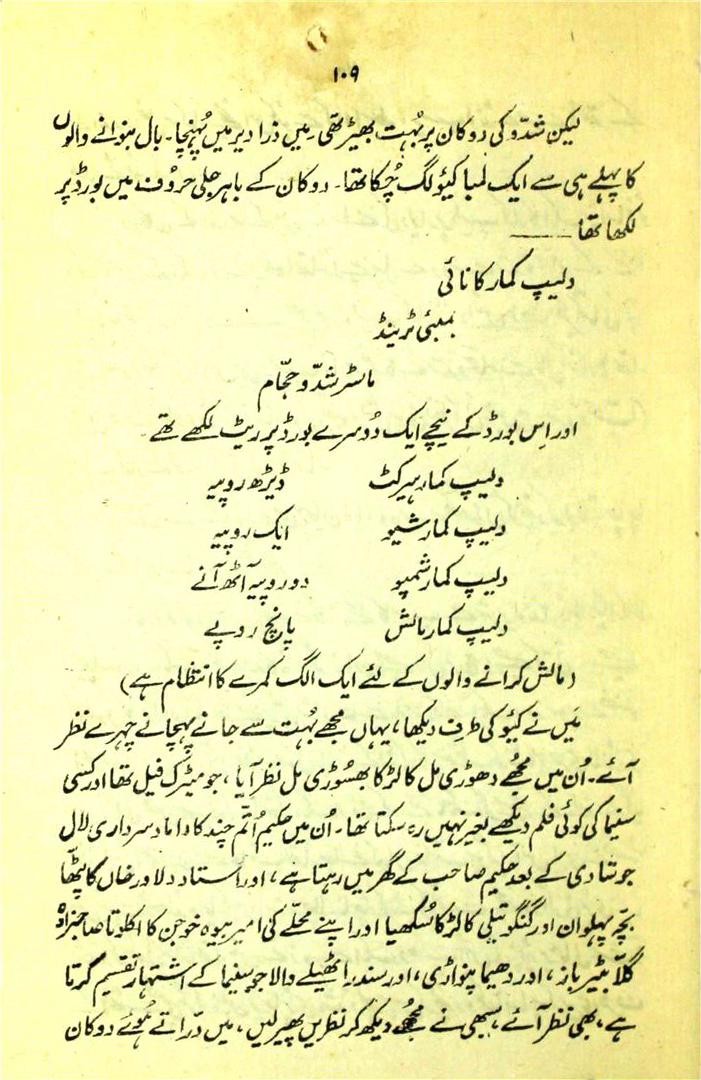 ۱۰۹
لیکن شدّو کی دوکان پر بُہت بھیڑ تھی۔ میں ذرا دیر میں پُہنچا۔ بال بنوانے والوں
کا پہلے ہی سے ایک لمبا کیئو لگ چُکا تھا۔ دوکان کے باہر جلی حروُف میں بورڈ پر
لکھا تھا ———
دلیپ کمار کا نائی
بمبئی ٹرینڈ
ماسٹر شدّو حجّام
اور اِس بورڈ کے نیچے ایک دُوسرے بورڈ پر ریٹ لکھے تھے۔
دلیپ کمار ہیرکٹ ڈیڑھ روپیہ
دلیپ کمار شیو ایک روپیہ
دلیپ کمار شمپو دو روپیہ آٹھ آنے
دلیپ کمار مالش پانچ روپے
(مالش کرانے والوں کے لئے ایک الگ کمرے کا انتظام ہے)
مَیں نے کیئو کی طرف دیکھا، یہاں مجھے بُہت سے جانے پہچانے چہرے نظر
آئے۔ اُن میں مجُھے دھوڑی مل کا لڑکا بھسُوڑی مل نظر آیا، جو میٹرک فیل تھا اور کسی
سنیما کی کوئی فلم دیکھے بغیر نہیں رہ سکتا تھا۔ اُن میں حکیم اُتّم چند کا داماد سرداری لال
جو شادی کے بعد حکیم صاحب کے گھر میں رہتا ہے، اور اُستاد دلاور خاں کا پٹھّا
بچّہ پہلوان اور گنگو تیلی کا لڑکا سُکھیا اور اپنے محلّے کی امیر بیوہ خوجن کا اکلوتا صاحبزادہ
گلّا بٹیر باز، اور دھیما پنواڑی، اور سندرا ٹھیلے والا جو سنیما کے اشتہار تقسیم کرتا
ہے، بھی نظر آئے، سبھی نے مجھُے دیکھ کر نظریں پھیر لیں، میں درّاتے ہُوئے دوکان